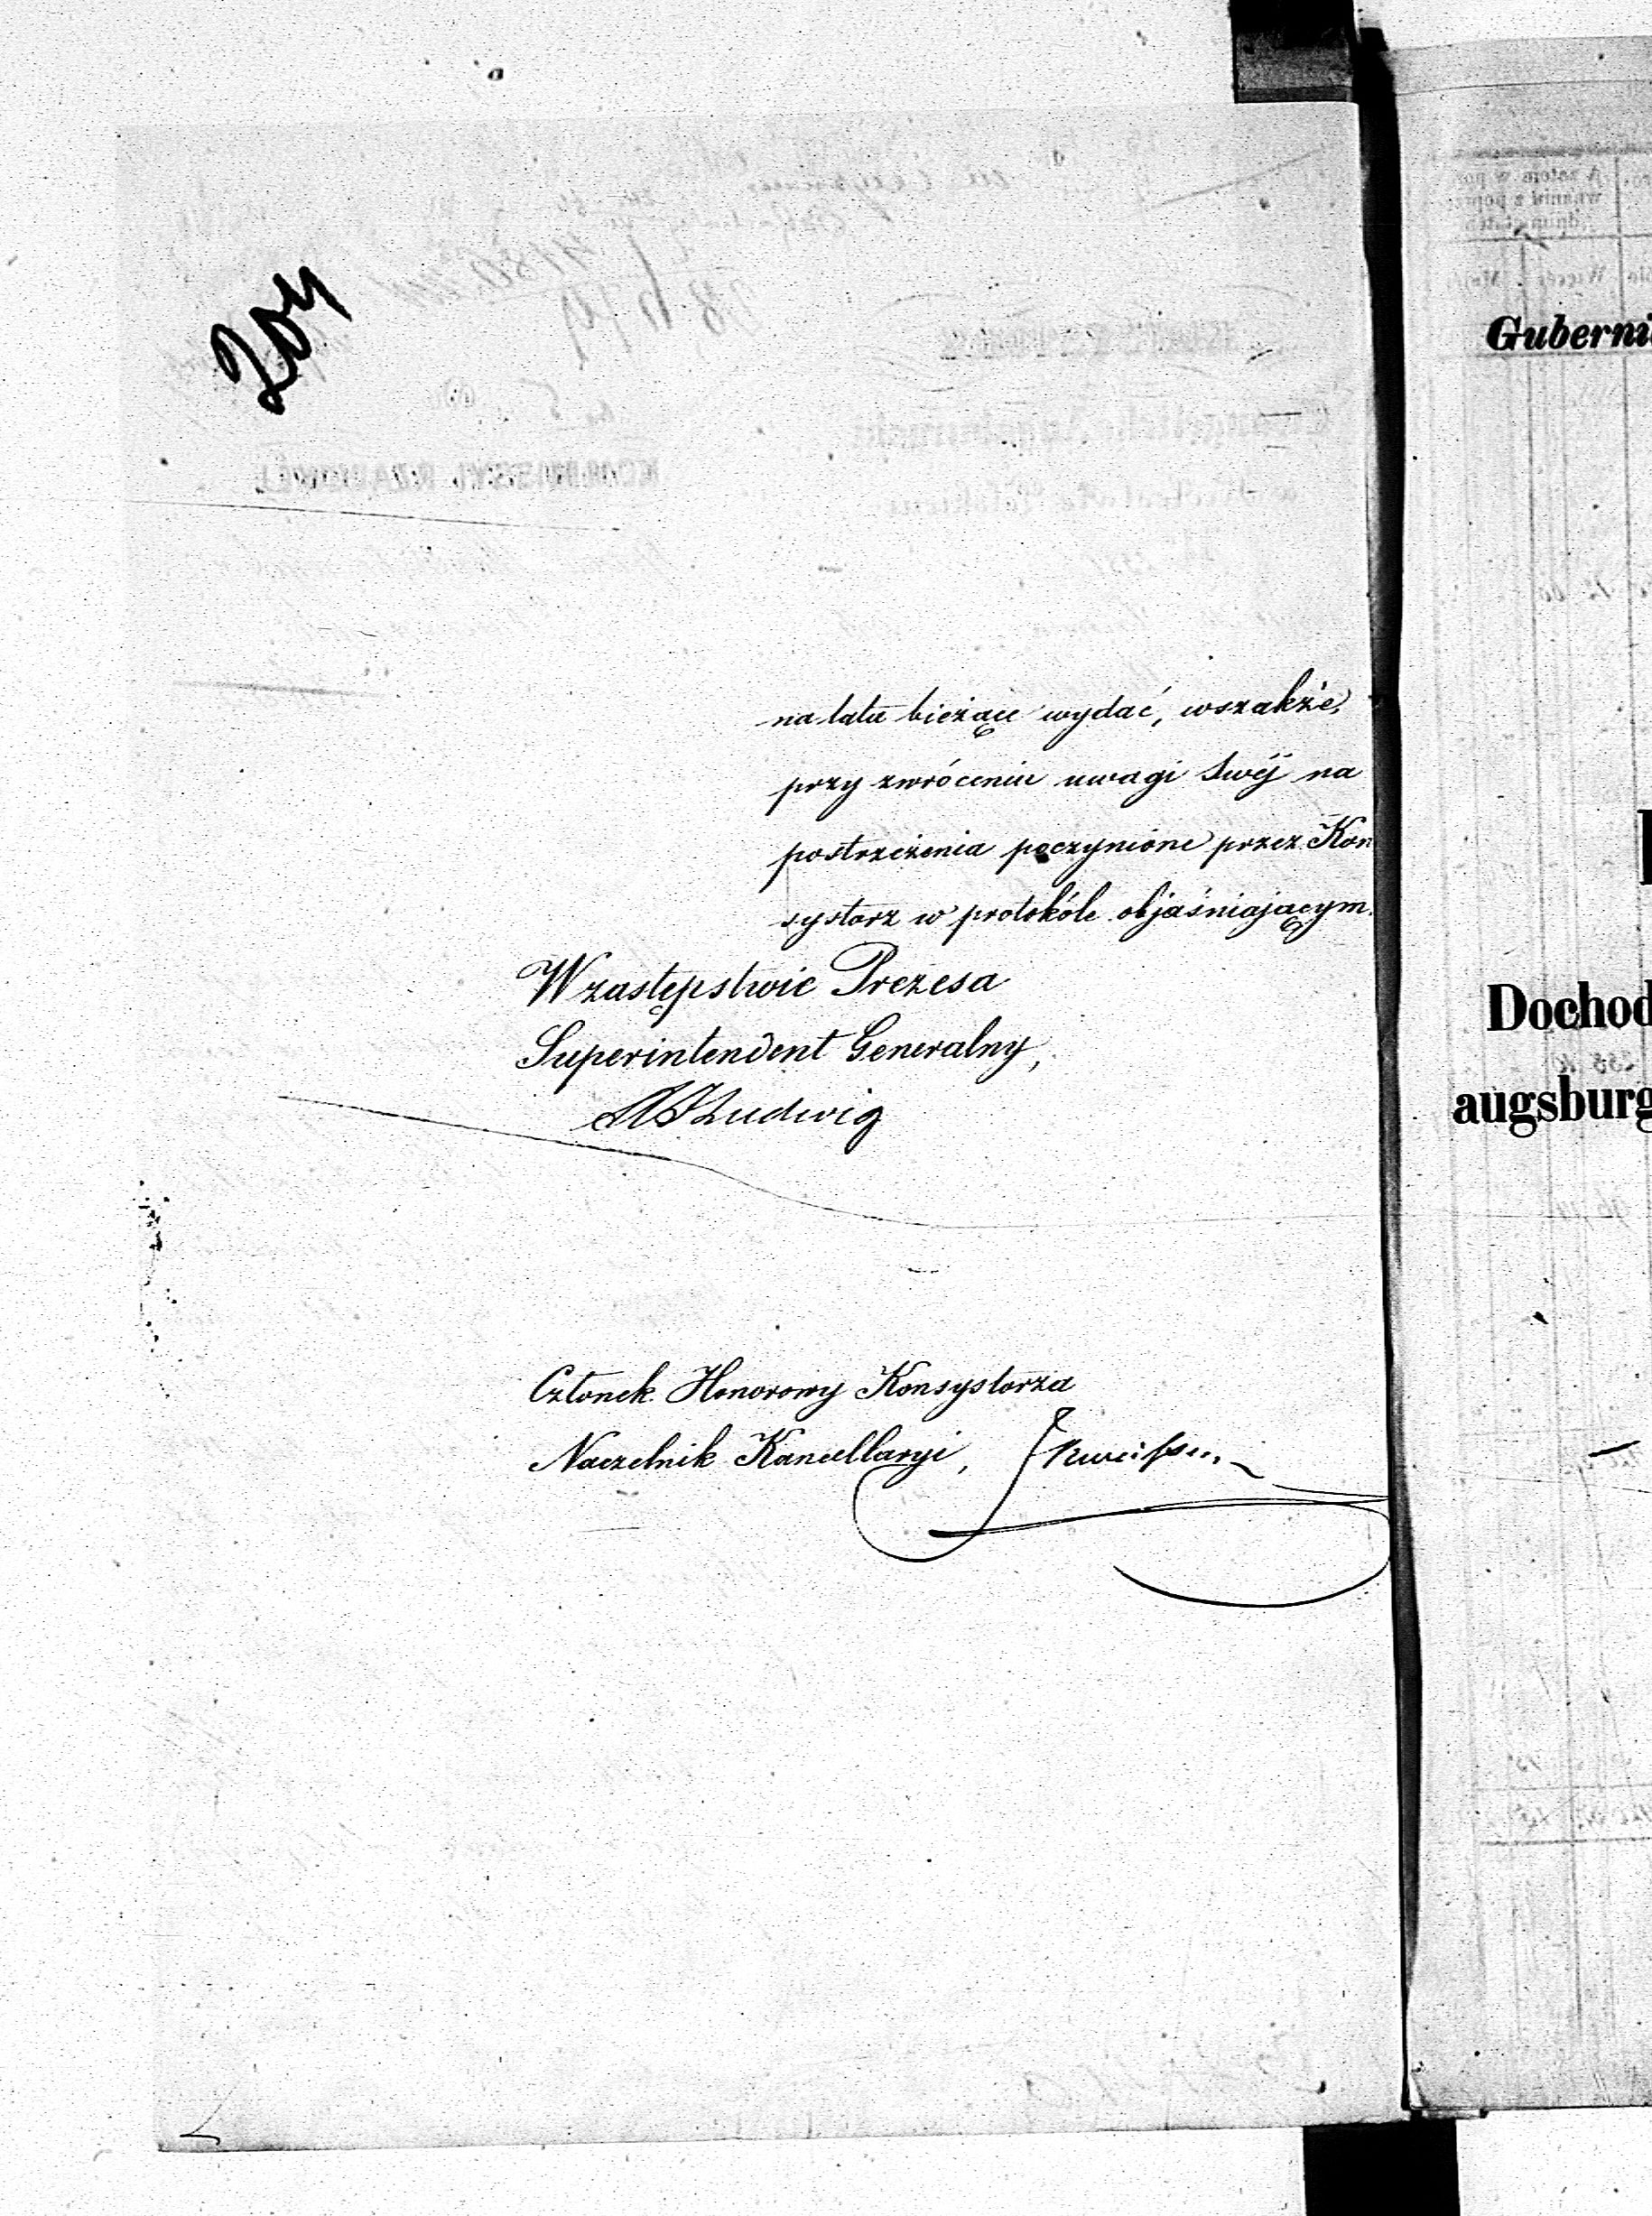 204
na lata bieżące wydać, wszakże,
przy zwróceniu uwagi swéj na
postrzeżenia poczynione przez Kon
systorz w protokóle objaśniającym.
W zastępstwie Prezesa
Superintendent Generalny,
Ludwig
Członek Honorowy Konsystorza
Naczelnik Kancellaryi,
Guberni
Dochod
augsburg